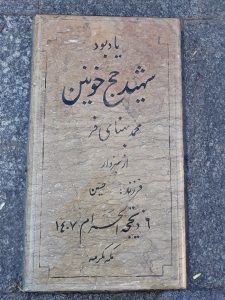 یادبود
شهید حج خونین
محمد بهنای فر
از سبزوار
فرزند : حسین
۶ ذیحجه الحرام ۱۴۰۷
مکه مکرمه